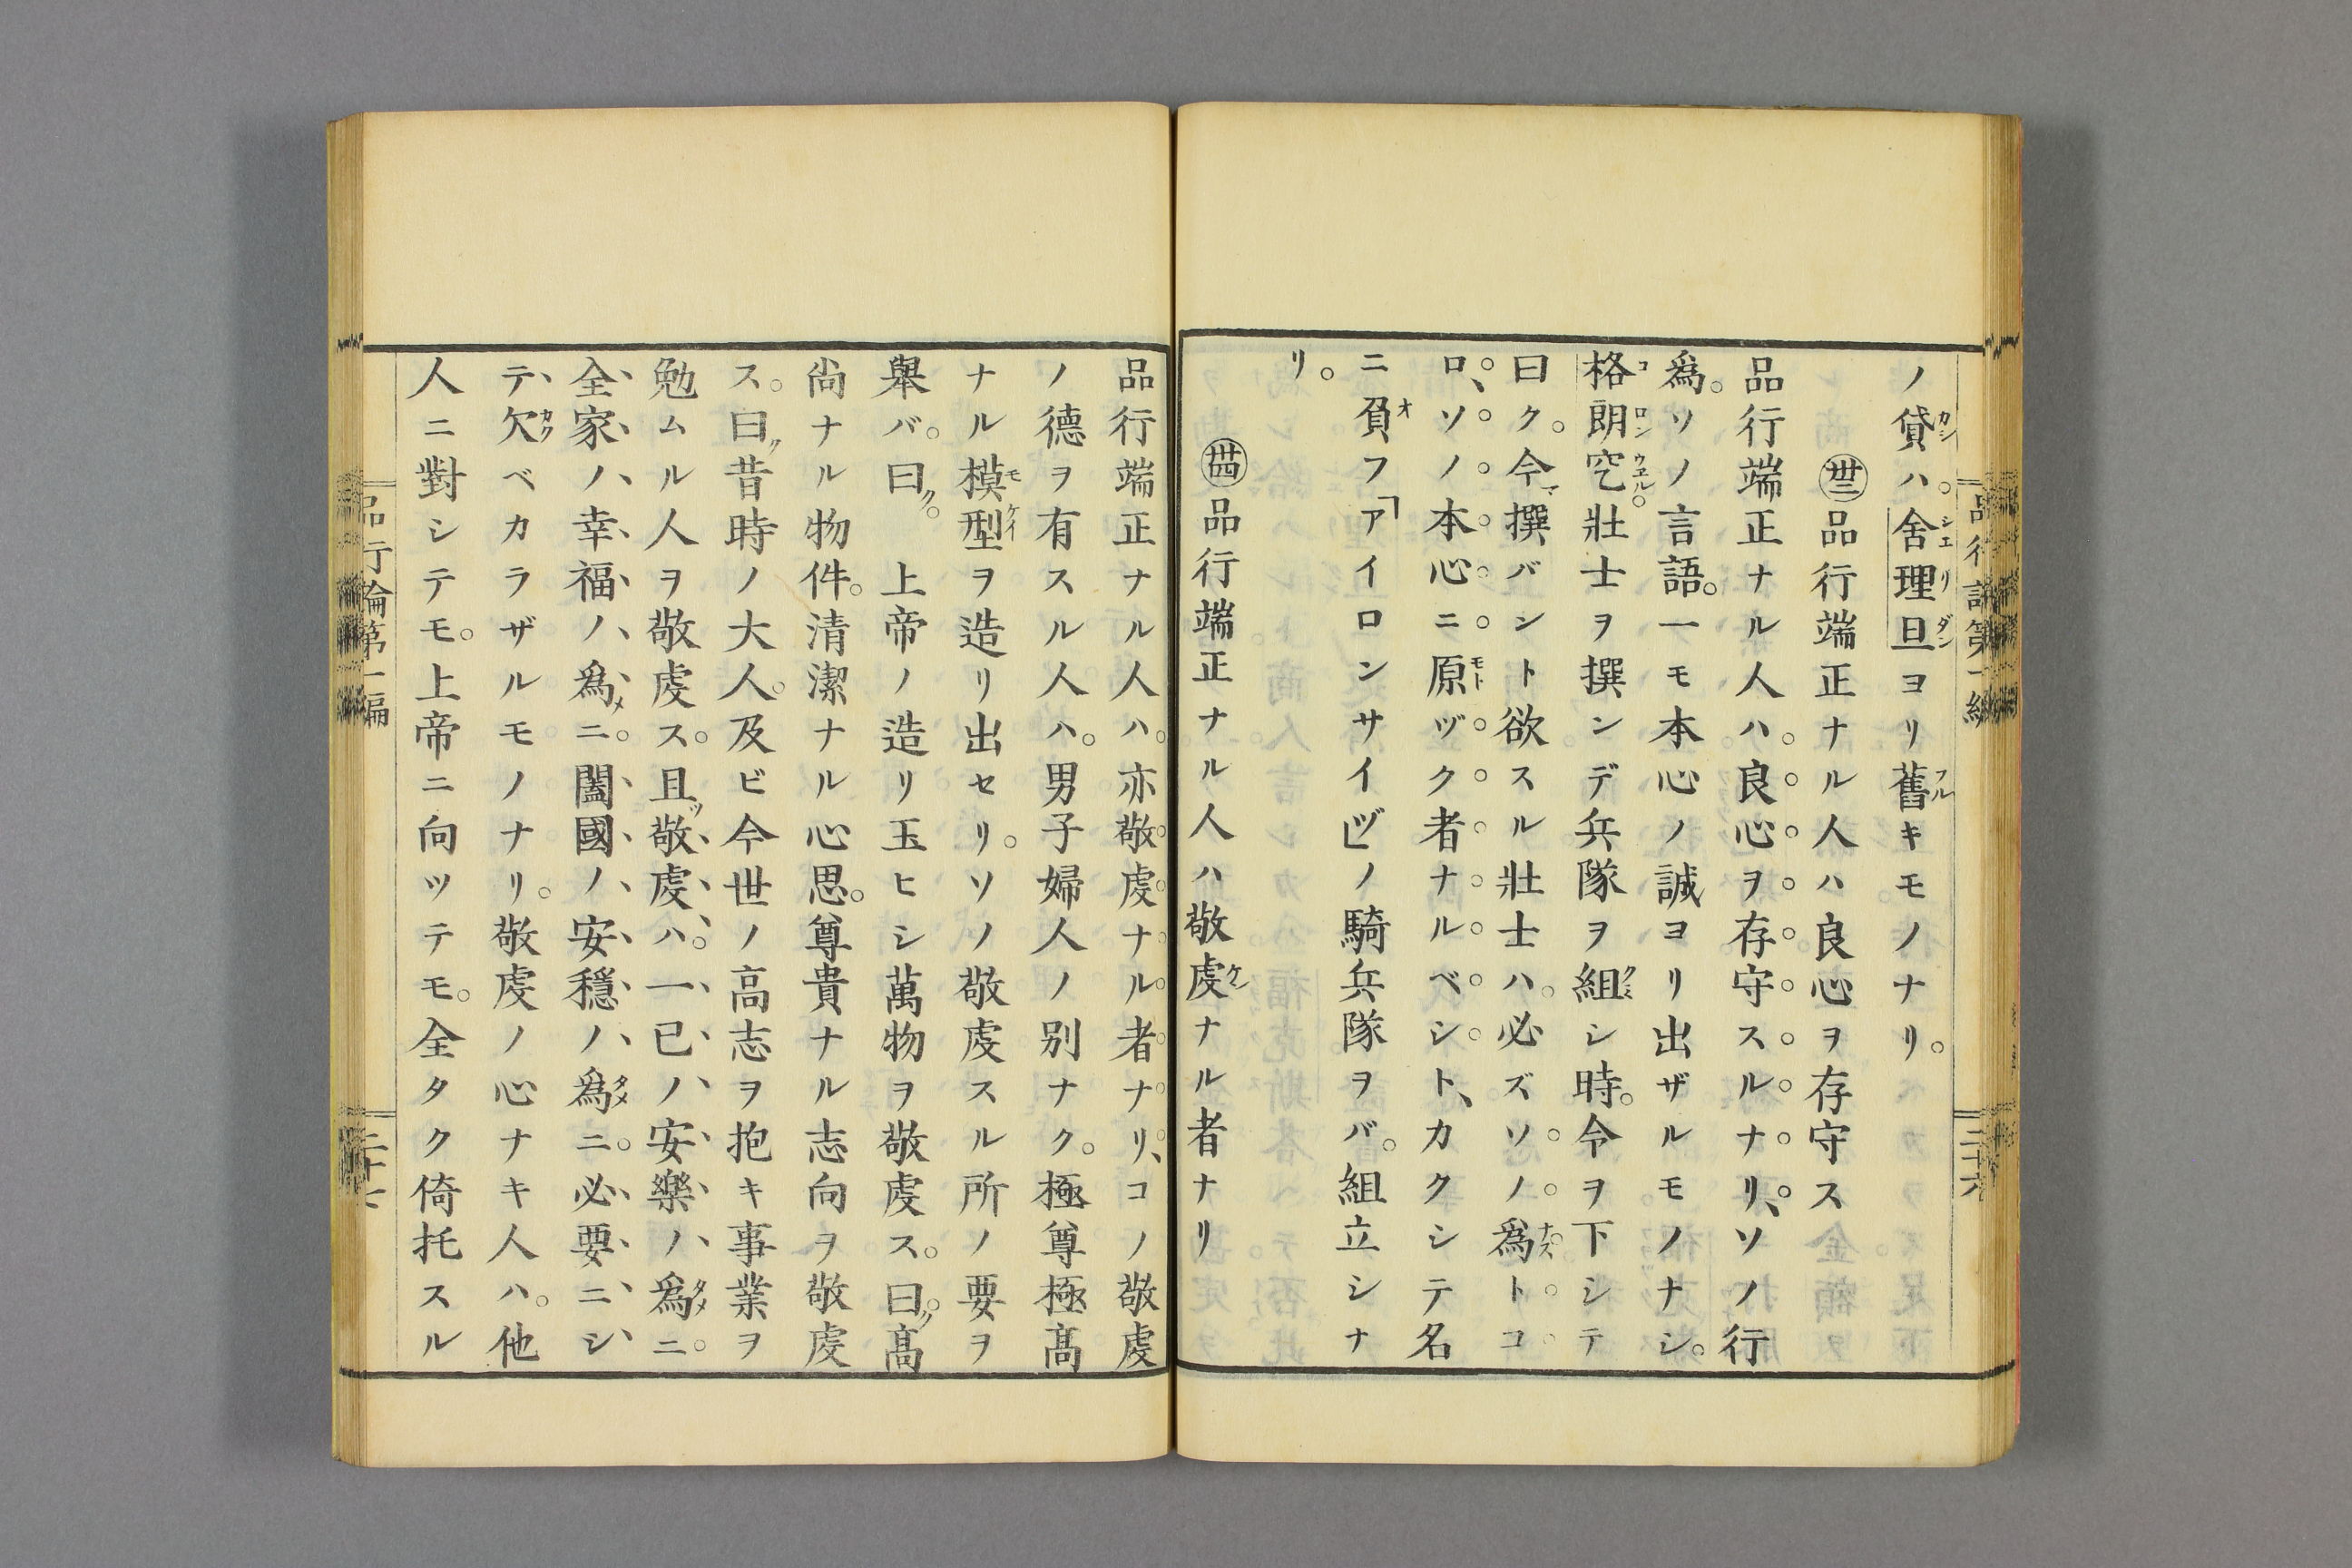 ノ貸ハ。舎理旦ヨリ舊キモノナリ。
品行端正ナル人ハ良心ヲ存守ス
品行端正ナル人ハ。良心ヲ存守スルナリ、ソノ行
爲。ソノ言語。一モ本心ノ誠ヨリ出ザルモノナシ。
格朗空。壯士ヲ撰ンデ兵隊ヲ組シ時。令ヲ下シテ
曰ク。今撰バント欲スル壯士ハ。必ズソノ爲トコ
ロ、ソノ本心ニ原ヅク者ナルベシト、カクシテ名
ニ負フ「アイロンサイヅ」ノ騎兵隊ヲバ。組立シナ
リ。
品行端正ナル人ハ敬虔ナル者ナリ
品行端正ナル人ハ。亦敬虔ナル者ナリ、コノ敬虔
ノ德ヲ有スル人ハ。男子婦人ノ別ナク。極尊極髙
ナル模型ヲ造リ出セリ。ソノ敬虔スル所ノ要ヲ
舉バ。曰ク。上帝ノ造リ玉ヒシ萬物ヲ敬虔ス。曰ク。髙
尚ナル物件。清潔ナル心思。尊貴ナル志向ヲ敬虔
ス。曰ク昔時ノ大人。及ビ今世ノ高志ヲ抱キ事業ヲ
勉ムル人ヲ敬虔ス。且ツ敬虔ハ。一己ノ安樂ノ爲ニ。
全家ノ幸福ノ爲メニ。闔國ノ安穩ノ爲ニ。必要ニシ
テ欠ベカラザルモノナリ。敬虔ノ心ナキ人ハ。他
人ニ對シテモ。上帝ニ向ツテモ。全タク倚托スル
品行論第一編